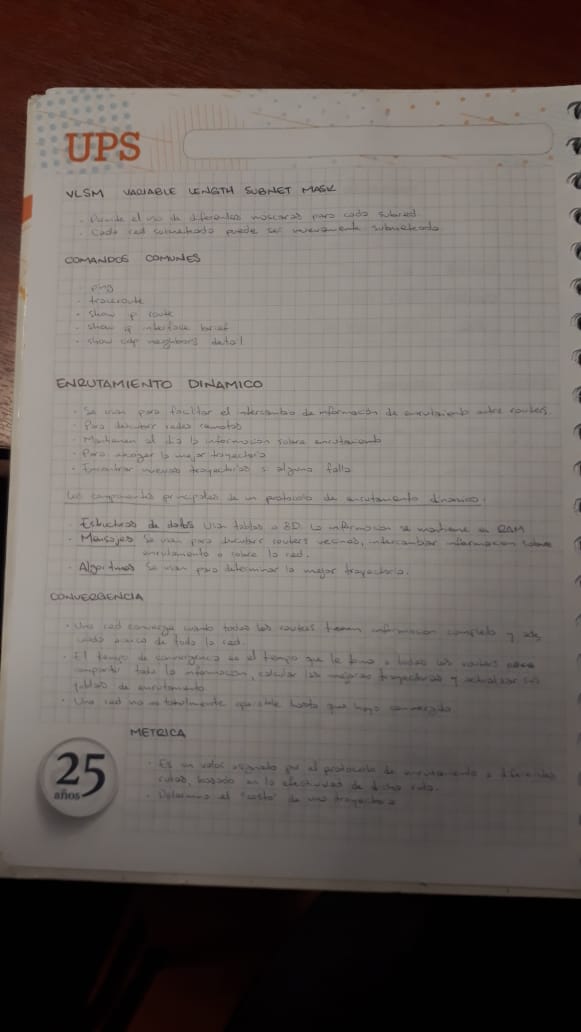 UPS
VLSM VARIABLE LENGTH SUBNET MASK
- Permite el uso de diferentes mascaras para cada subred
- Cada red subneteada puede ser nuevamente subneteada
COMANDOS COMUNES
- ping
- traceroute
- show ip route
- show ip interface brief
- show cdp neighbors detail
ENRUTAMIENTO DINAMICO
- Se usan para facilitar el intercambio de información de enrutamiento entre routers.
- Para descubrir redes remotas
- Mantienen al dia la informacion sobre enrutamiento
- Para escoger la mejor trayectoria
- Encontrar nuevas trayectorias si alguna falla
Los componentes principales de un protocolo de enrutamiento dinamico:
- Estructuras de datos Usan tablas o BD. La informacion se mantiene en RAM
- Mensajes Se usan para descubrir routers vecinos, intercambiar informacion sobre
enrutamiento o sobre la red.
- Algoritmos Se usan para determinar la mejor trayectoria.
CONVERGENCIA
- Una red converge cuando todos los routers tienen informacion completa y
acerca de toda la red.
- El tiempo de convergencia es el tiempo que le toma a todos los routers
compartir toda la informacion, calcular las mejores trayectorias y actualizar sus
tablas de enrutamiento
- Una red no es totalmente operable hasta que haya convergido.
METRICA
- Es un valor asignado por el protocolo de enrutamiento a diferentes
rutas, basado en la efectividad de dicha ruta.
- Determina el "costo" de una trayectoria
25
años